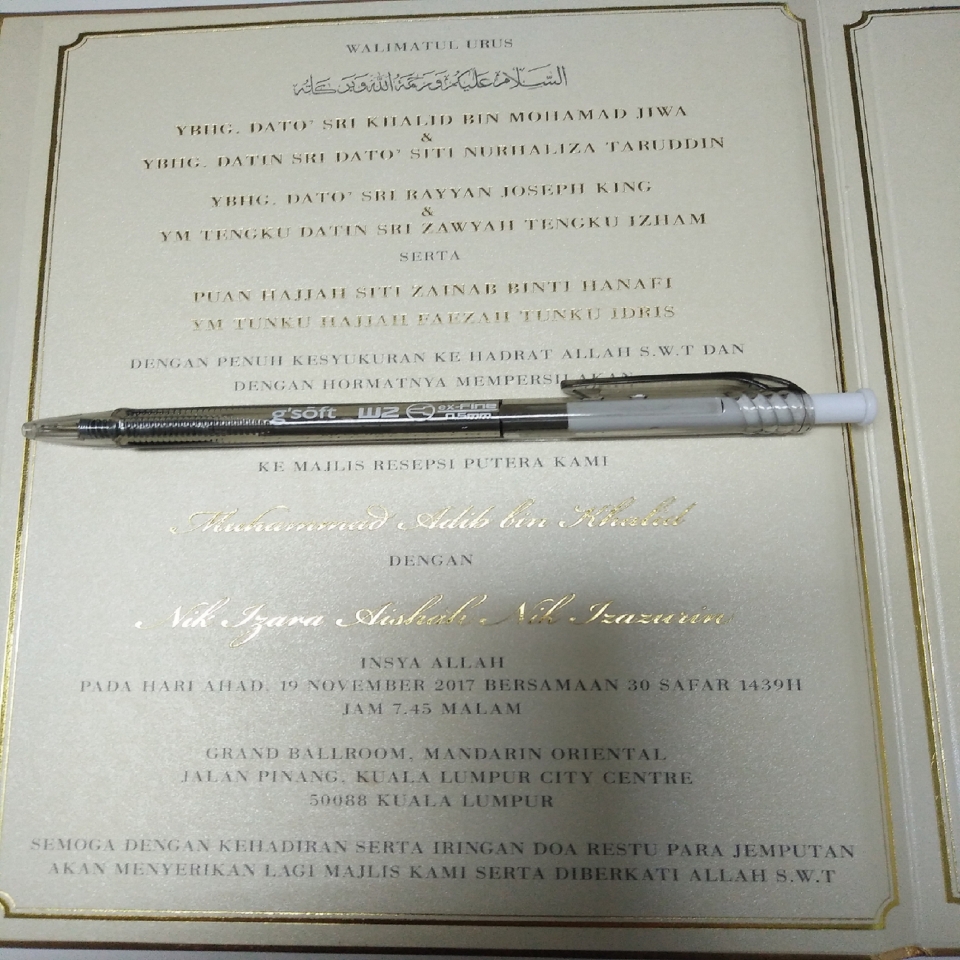 WALIMATUL URUS
السَّلَامُ عَلَيْكُمْ وَرَحْمَةُ اللهِ وَبَرَكَاتُهُ
YBHG. DATO' SRI KHALID BIN MOHAMAD JIWA
&
YBHG. DATIN SRI DATO' SITI NURHALIZA TARUDDIN
YBHG. DATO' SRI RAYYAN JOSEPH KING
&
YM TENGKU DATIN SRI ZAWYAH TENGKU IZHAM
SERTA
PUAN HAJJAH SITI ZAINAB BINTI HANAFI
YM TUNKU HAJJAH FAEZAH TUNKU IDRIS
DENGAN PENUH KESYUKURAN KE HADRAT ALLAH S.W.T DAN
DENGAN HORMATNYA MEMPERSILAKAN
g'soft W2 ex-Fine 0.5mm
KE MAJLIS RESEPSI PUTERA KAMI
Muhammad Adib bin Khalid
DENGAN
Nik Izara Aishah Nik Izazurin
INSYA ALLAH
PADA HARI AHAD, 19 NOVEMBER 2017 BERSAMAAN 30 SAFAR 1439H
JAM 7.45 MALAM
GRAND BALLROOM, MANDARIN ORIENTAL
JALAN PINANG, KUALA LUMPUR CITY CENTRE
50088 KUALA LUMPUR
SEMOGA DENGAN KEHADIRAN SERTA IRINGAN DOA RESTU PARA JEMPUTAN
AKAN MENYERIKAN LAGI MAJLIS KAMI SERTA DIBERKATI ALLAH S.W.T